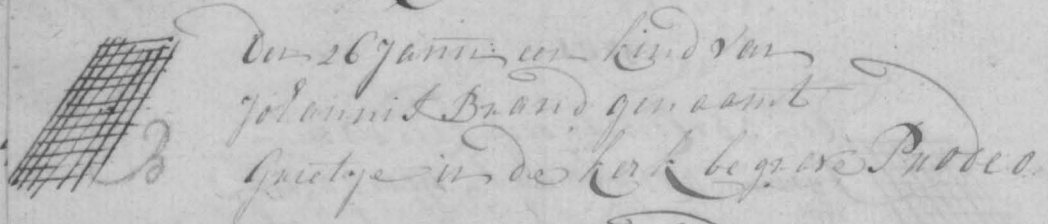 Den 26 Jann een kind van
Johannis Brand genaamt
Grietje in de kerk begrave Prodeo